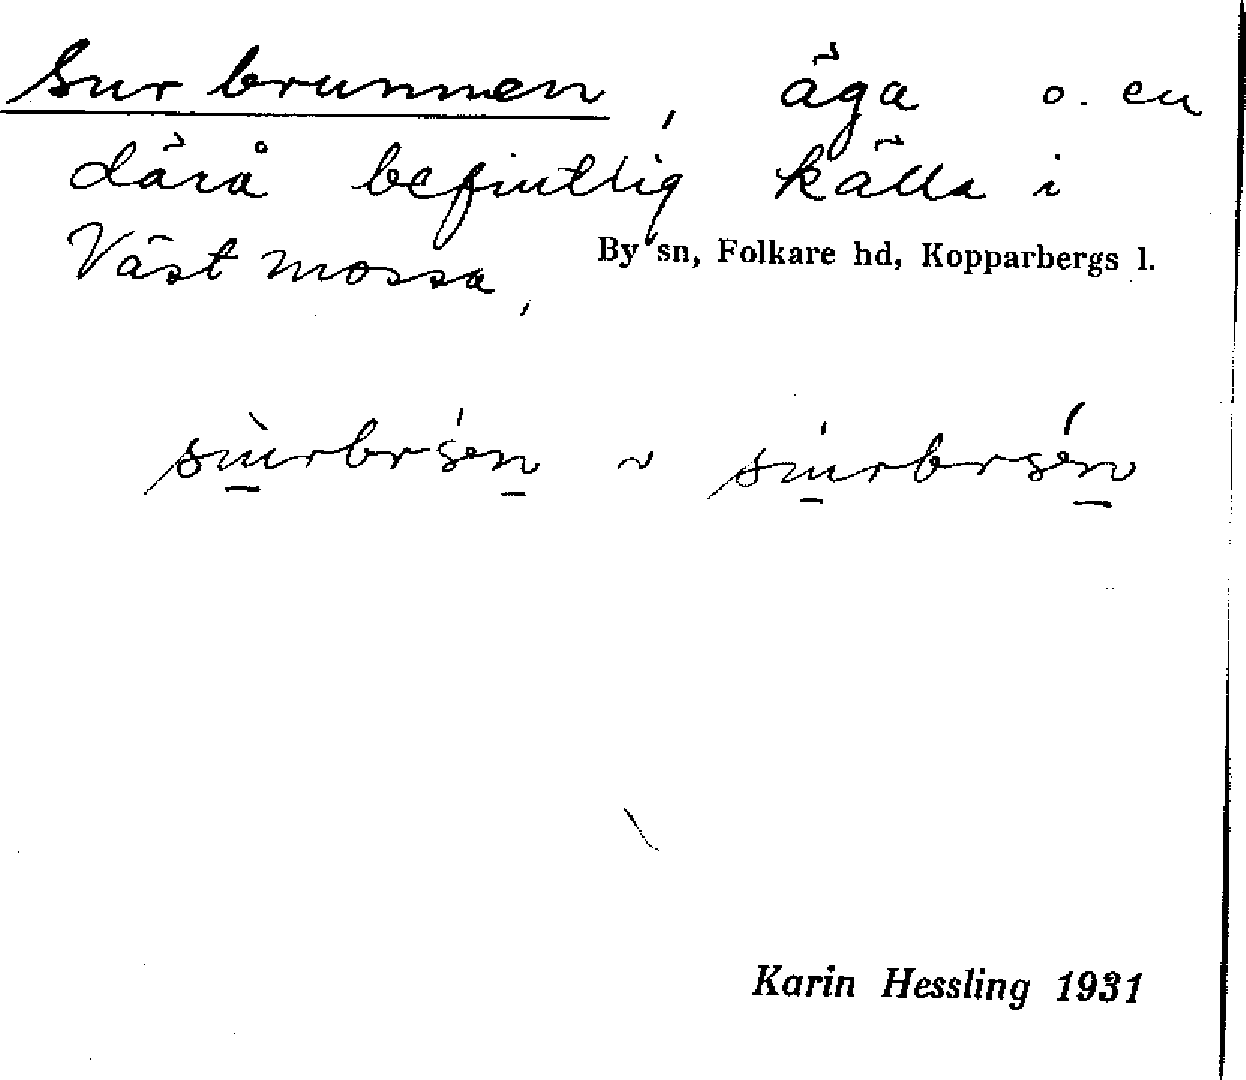 Surbrunnen, äga o. en
därå befintlig källa i
Västmossa,
By sn, Folkare hd, Kopparbergs l.
Karin Hessling 1931